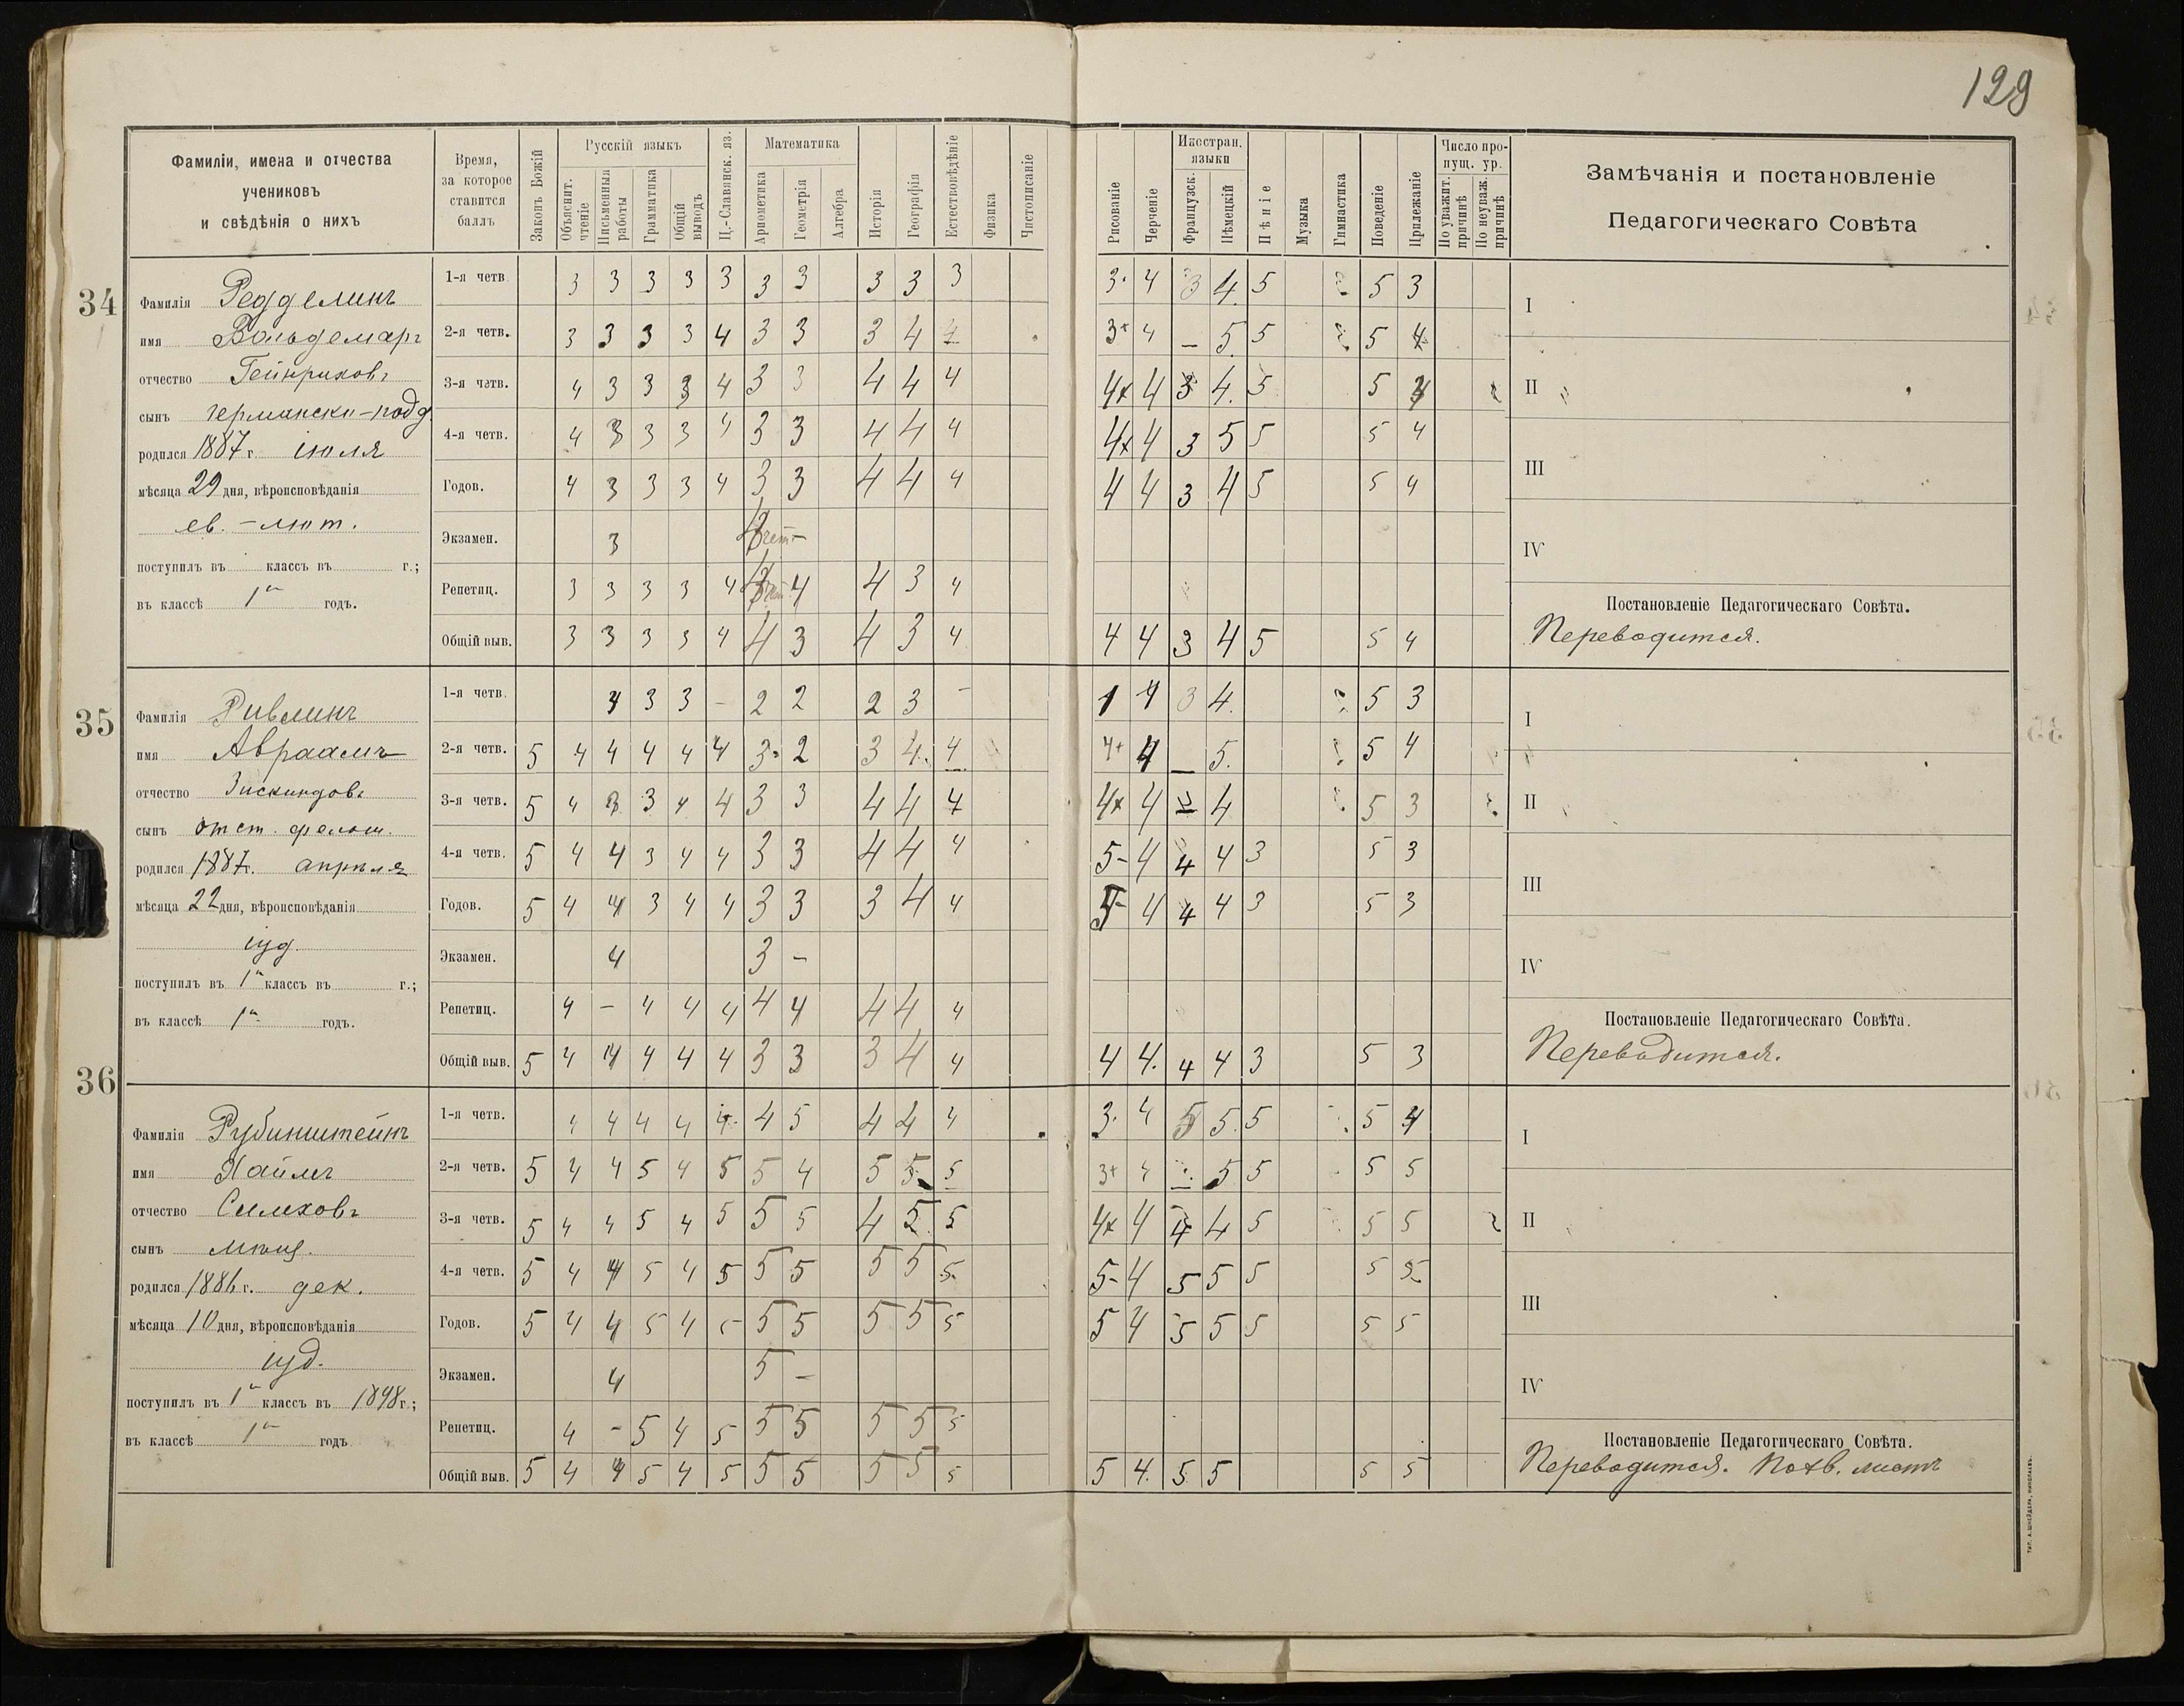 129
Фамиліи, имена и отчества
учениковъ
и свѣдѣнія о нихъ
Время,
за которое
ставится
баллъ
Законъ Божій
Русскій языкъ
Объяснит. чтеніе
Письменныя работы
Грамматика
Общій выводъ
Ц.-Славянск. яз.
Математика
Ариѳметика
Геометрія
Алгебра
Исторія
Географія
Естествовѣдѣніе
Физика
Чистописаніе
Рисованіе
Черченіе
Иностран. языки
Французск.
Нѣмецкій
Пѣніе
Музыка
Гимнастика
Поведеніе
Прилежаніе
Число пропущ. ур.
По уважит. причинѣ
По неуваж. причинѣ
Замѣчанія и постановленіе
Педагогическаго Совѣта
34
Фамилія Редделинъ
имя Вольдемаръ
отчество Гейнриховъ
сынъ германски-подд.
родился 1887 г. іюля
мѣсяца 29 дня, вѣроисповѣданія
ев.-лют.
поступилъ въ классъ въ г.;
въ классѣ 1й годъ.
1-я четв. 3 3 3 3 3 3 3 3 3 3 3· 4 3 4. 5 5 3
2-я четв. 3 3 3 3 4 3 3 3 4 4 3+ 4 — 5. 5 5 4
3-я четв. 4 3 3 3 4 3 3 4 4 4 4x 4 3 4. 5 5 4
4-я четв. 4 3 3 3 4 3 3 4 4 4 4x 4 3 5 5 5 4
Годов. 4 3 3 3 4 3 3 4 4 4 4 4 3 4 5 5 4
Экзамен. 3
Репетиц. 3 3 3 3 4 4 4 3 4
Общій выв. 3 3 3 3 4 4 3 4 3 4 4 4 3 4 5 5 4
I
II
III
IV
Постановленіе Педагогическаго Совѣта.
Переводится.
35
Фамилія Ривлинъ
имя Авраамъ
отчество Зискиндовъ
сынъ отст. фельдш.
родился 1887 г. апрѣля
мѣсяца 22 дня, вѣроисповѣданія
іуд.
поступилъ въ 1й классъ въ г.;
въ классѣ 1й годъ.
1-я четв. 4 3 3 — 2 2 2 3 — 1 4 3 4. 5 3
2-я четв. 5 4 4 4 4 4 3- 2 3 4. 4 4+ 4 — 5. 5 4
3-я четв. 5 4 3 3 4 4 3 3 4 4 4 4x 4 4 5 3
4-я четв. 5 4 4 3 4 4 3 3 4 4 4 5- 4 4 4 3 5 3
Годов. 5 4 4 3 4 4 3 3 3 4 4 5- 4 4 4 3 5 3
Экзамен. 4 3 —
Репетиц. 4 — 4 4 4 4 4 4 4 4
Общій выв. 5 4 4 4 4 4 3 3 3 4 4 4 4. 4 4 3 5 3
I
II
III
IV
Постановленіе Педагогическаго Совѣта.
Переводится.
36
Фамилія Рубинштейнъ
имя Хаимъ
отчество Симховъ
сынъ мѣщ.
родился 1886 г. дек.
мѣсяца 10 дня, вѣроисповѣданія
іуд.
поступилъ въ 1й классъ въ 1898 г.;
въ классѣ 1й годъ
1-я четв. 4 4 4 4 4 4 5 4 4 4 3. 4 5 5. 5 5 4
2-я четв. 5 4 4 5 4 5 5 4 5 5 5 3+ 4 — 5 5 5 5
3-я четв. 5 4 4 5 4 5 5 5 4 5 5 4x 4 4 4 5 5 5
4-я четв. 5 4 4 5 4 5 5 5 5 5 5 5- 4 5 5 5 5 5
Годов. 5 4 4 5 4 5 5 5 5 5 5 5 4 5 5 5 5 5
Экзамен. 4 5 —
Репетиц. 4 — 5 4 5 5 5 5 5 5
Общій выв. 5 4 4 5 4 5 5 5 5 5 5 5 4. 5 5 5 5
I
II
III
IV
Постановленіе Педагогическаго Совѣта.
Переводится. Похв. листъ
ТИП. А. ШНЕЙДЕРА, НИКОЛАЕВЪ.